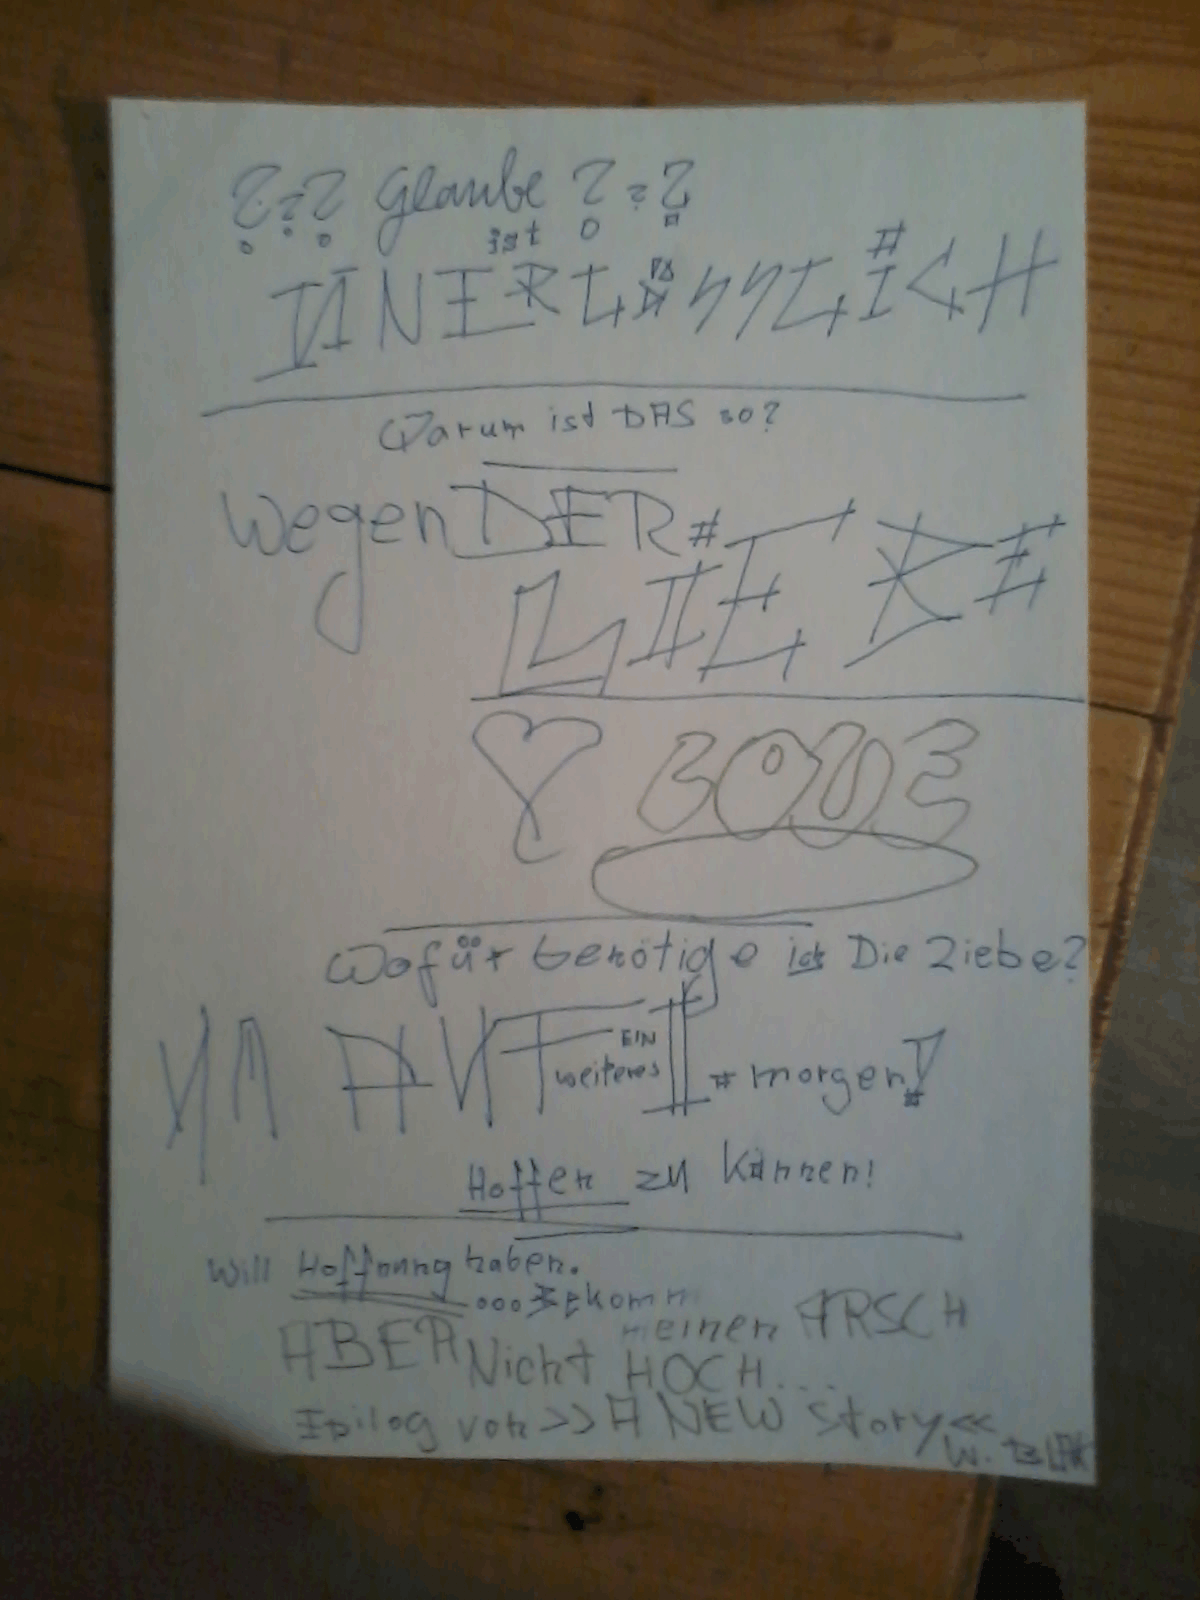 ??? Glaube ???
ist
UNERLÄSSLICH
Warum ist DAS so?
Wegen DER #
LIEBE
LOVE
Wofür benötige ich Die Liebe?
UM AUF EIN weiteres # morgen!
Hoffen zu können!
Will Hoffnung haben.
...Bekomm
ABER meinen ARSCH
Nicht HOCH....
Epilog von >>A NEW Story<<
W.